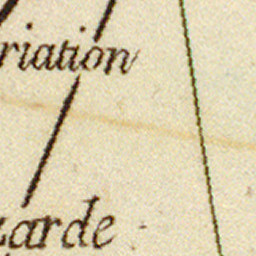 riation
zarde